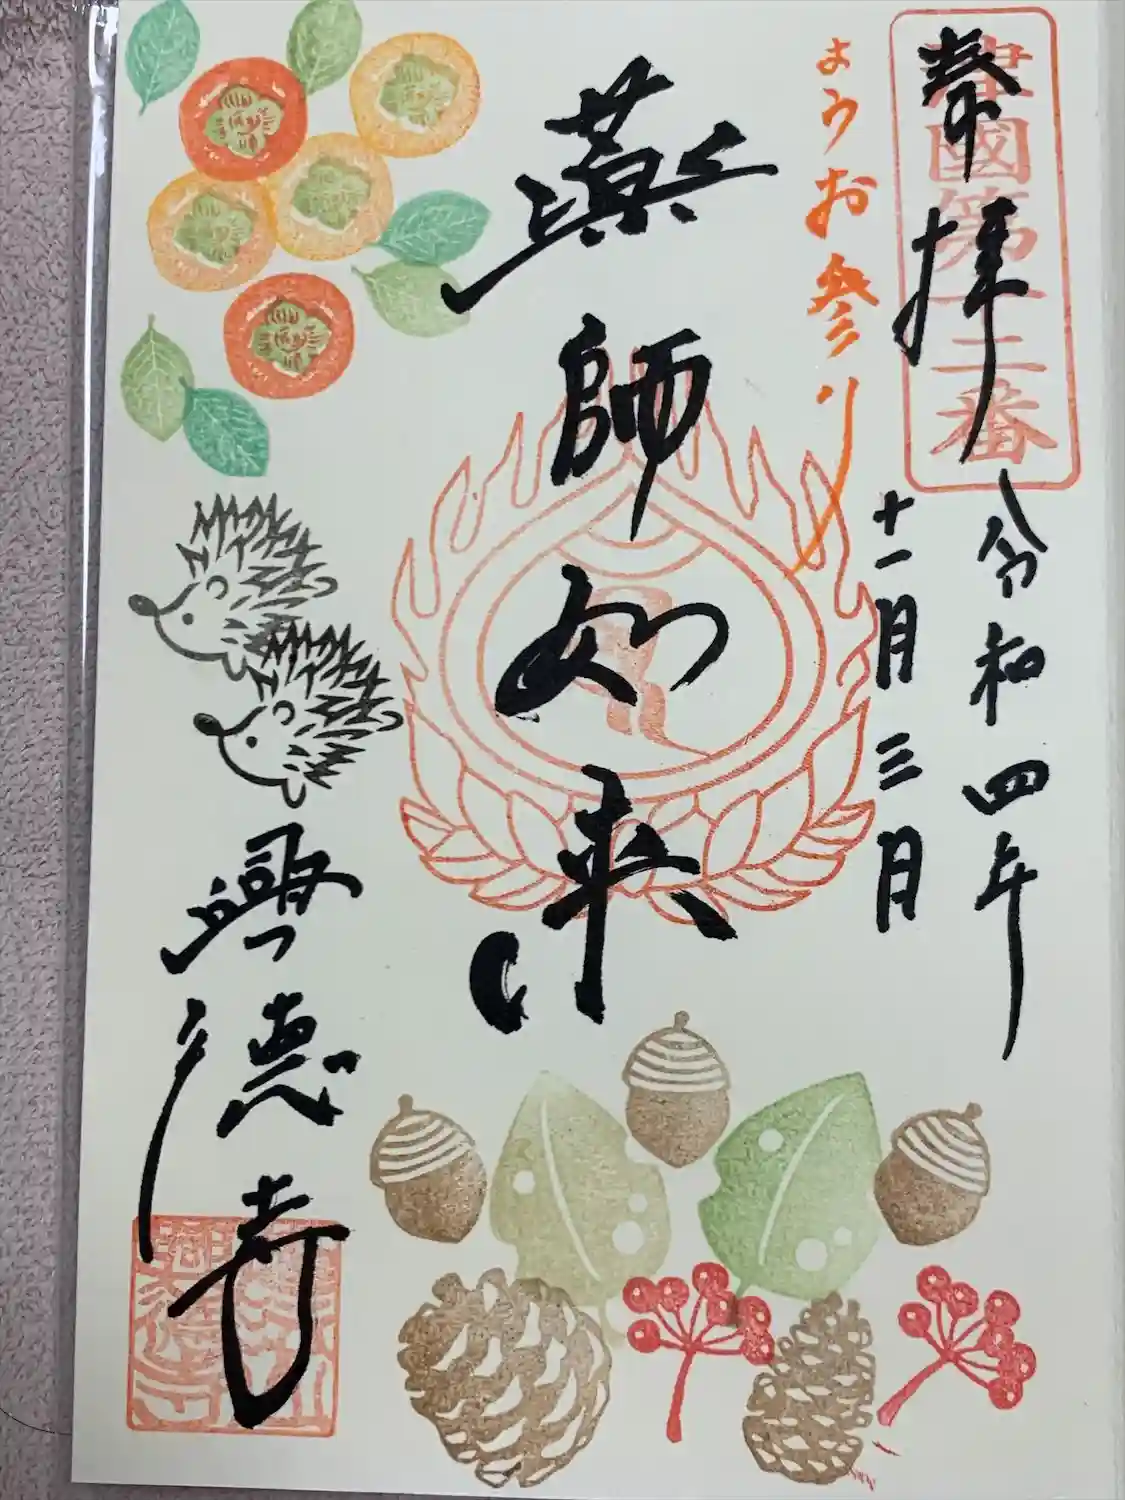 奉拝
津國第十三番
令和四年
十一月三日
ようお参り
薬師如来
興徳寺